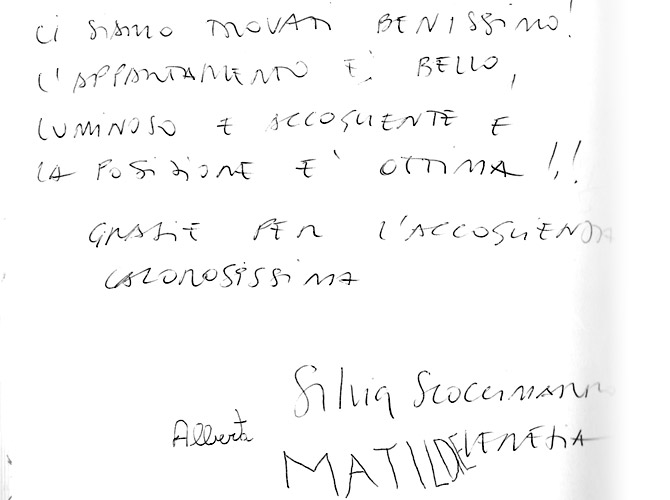 CI SIAMO TROVATI BENISSIMO!
L'APPARTAMENTO E' BELLO,
LUMINOSO E ACCOGLIENTE E
LA POSIZIONE E' OTTIMA!!
GRAZIE PER L'ACCOGLIENZA
CALOROSISSIMA
Silvia
Alberta
MATILDE VENEZIA